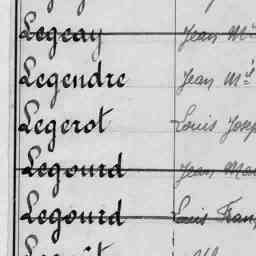 Legeay Jean M
Legendre Jean M
Legerot Louis Josep
Legourd Jean Ma
Legourd Louis Fran